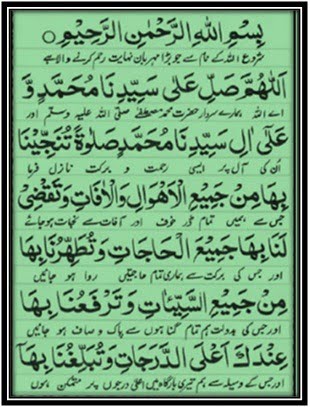 بِسْمِ اللهِ الرَّحْمٰنِ الرَّحِيْمِ
شروع اللہ کے نام سے جو بڑا مہربان نہایت رحم کرنے والا ہے
اَللّٰهُمَّ صَلِّ عَلٰى سَيِّدِنَا مُحَمَّدٍ وَّ
اے اللہ ہمارے سردار حضرت محمد مصطفےٰ صلی اللہ علیہ وسلم اور
عَلٰٓى اٰلِ سَيِّدِنَا مُحَمَّدٍ صَلٰوةً تُنَجِّيْنَا
اُن کی آل پر ایسی رحمت و برکت نازل فرما
بِهَا مِنْ جَمِيْعِ الْاَهْوَالِ وَالْاٰفَاتِ وَتَقْضِىْ
جس سے ہمیں تمام ڈر خوف اور آفات سے نجات ہوجائے
لَنَا بِهَا جَمِيْعَ الْحَاجَاتِ وَتُطَهِّرُنَا بِهَا
اور جس کی برکت سے ہماری تمام حاجتیں روا ہو جائیں
مِنْ جَمِيْعِ السَّيِّاٰتِ وَتَرْفَعُنَا بِهَا
اور جس کی بدولت ہم تمام گناہوں سے پاک و صاف ہو جائیں
عِنْدَكَ اَعْلَى الدَّرَجَاتِ وَتُبَلِّغُنَا بِهَآ
اور جس کے وسیلہ سے ہم تیری بارگاہ میں اعلیٰ درجوں پر متمکن ہوں